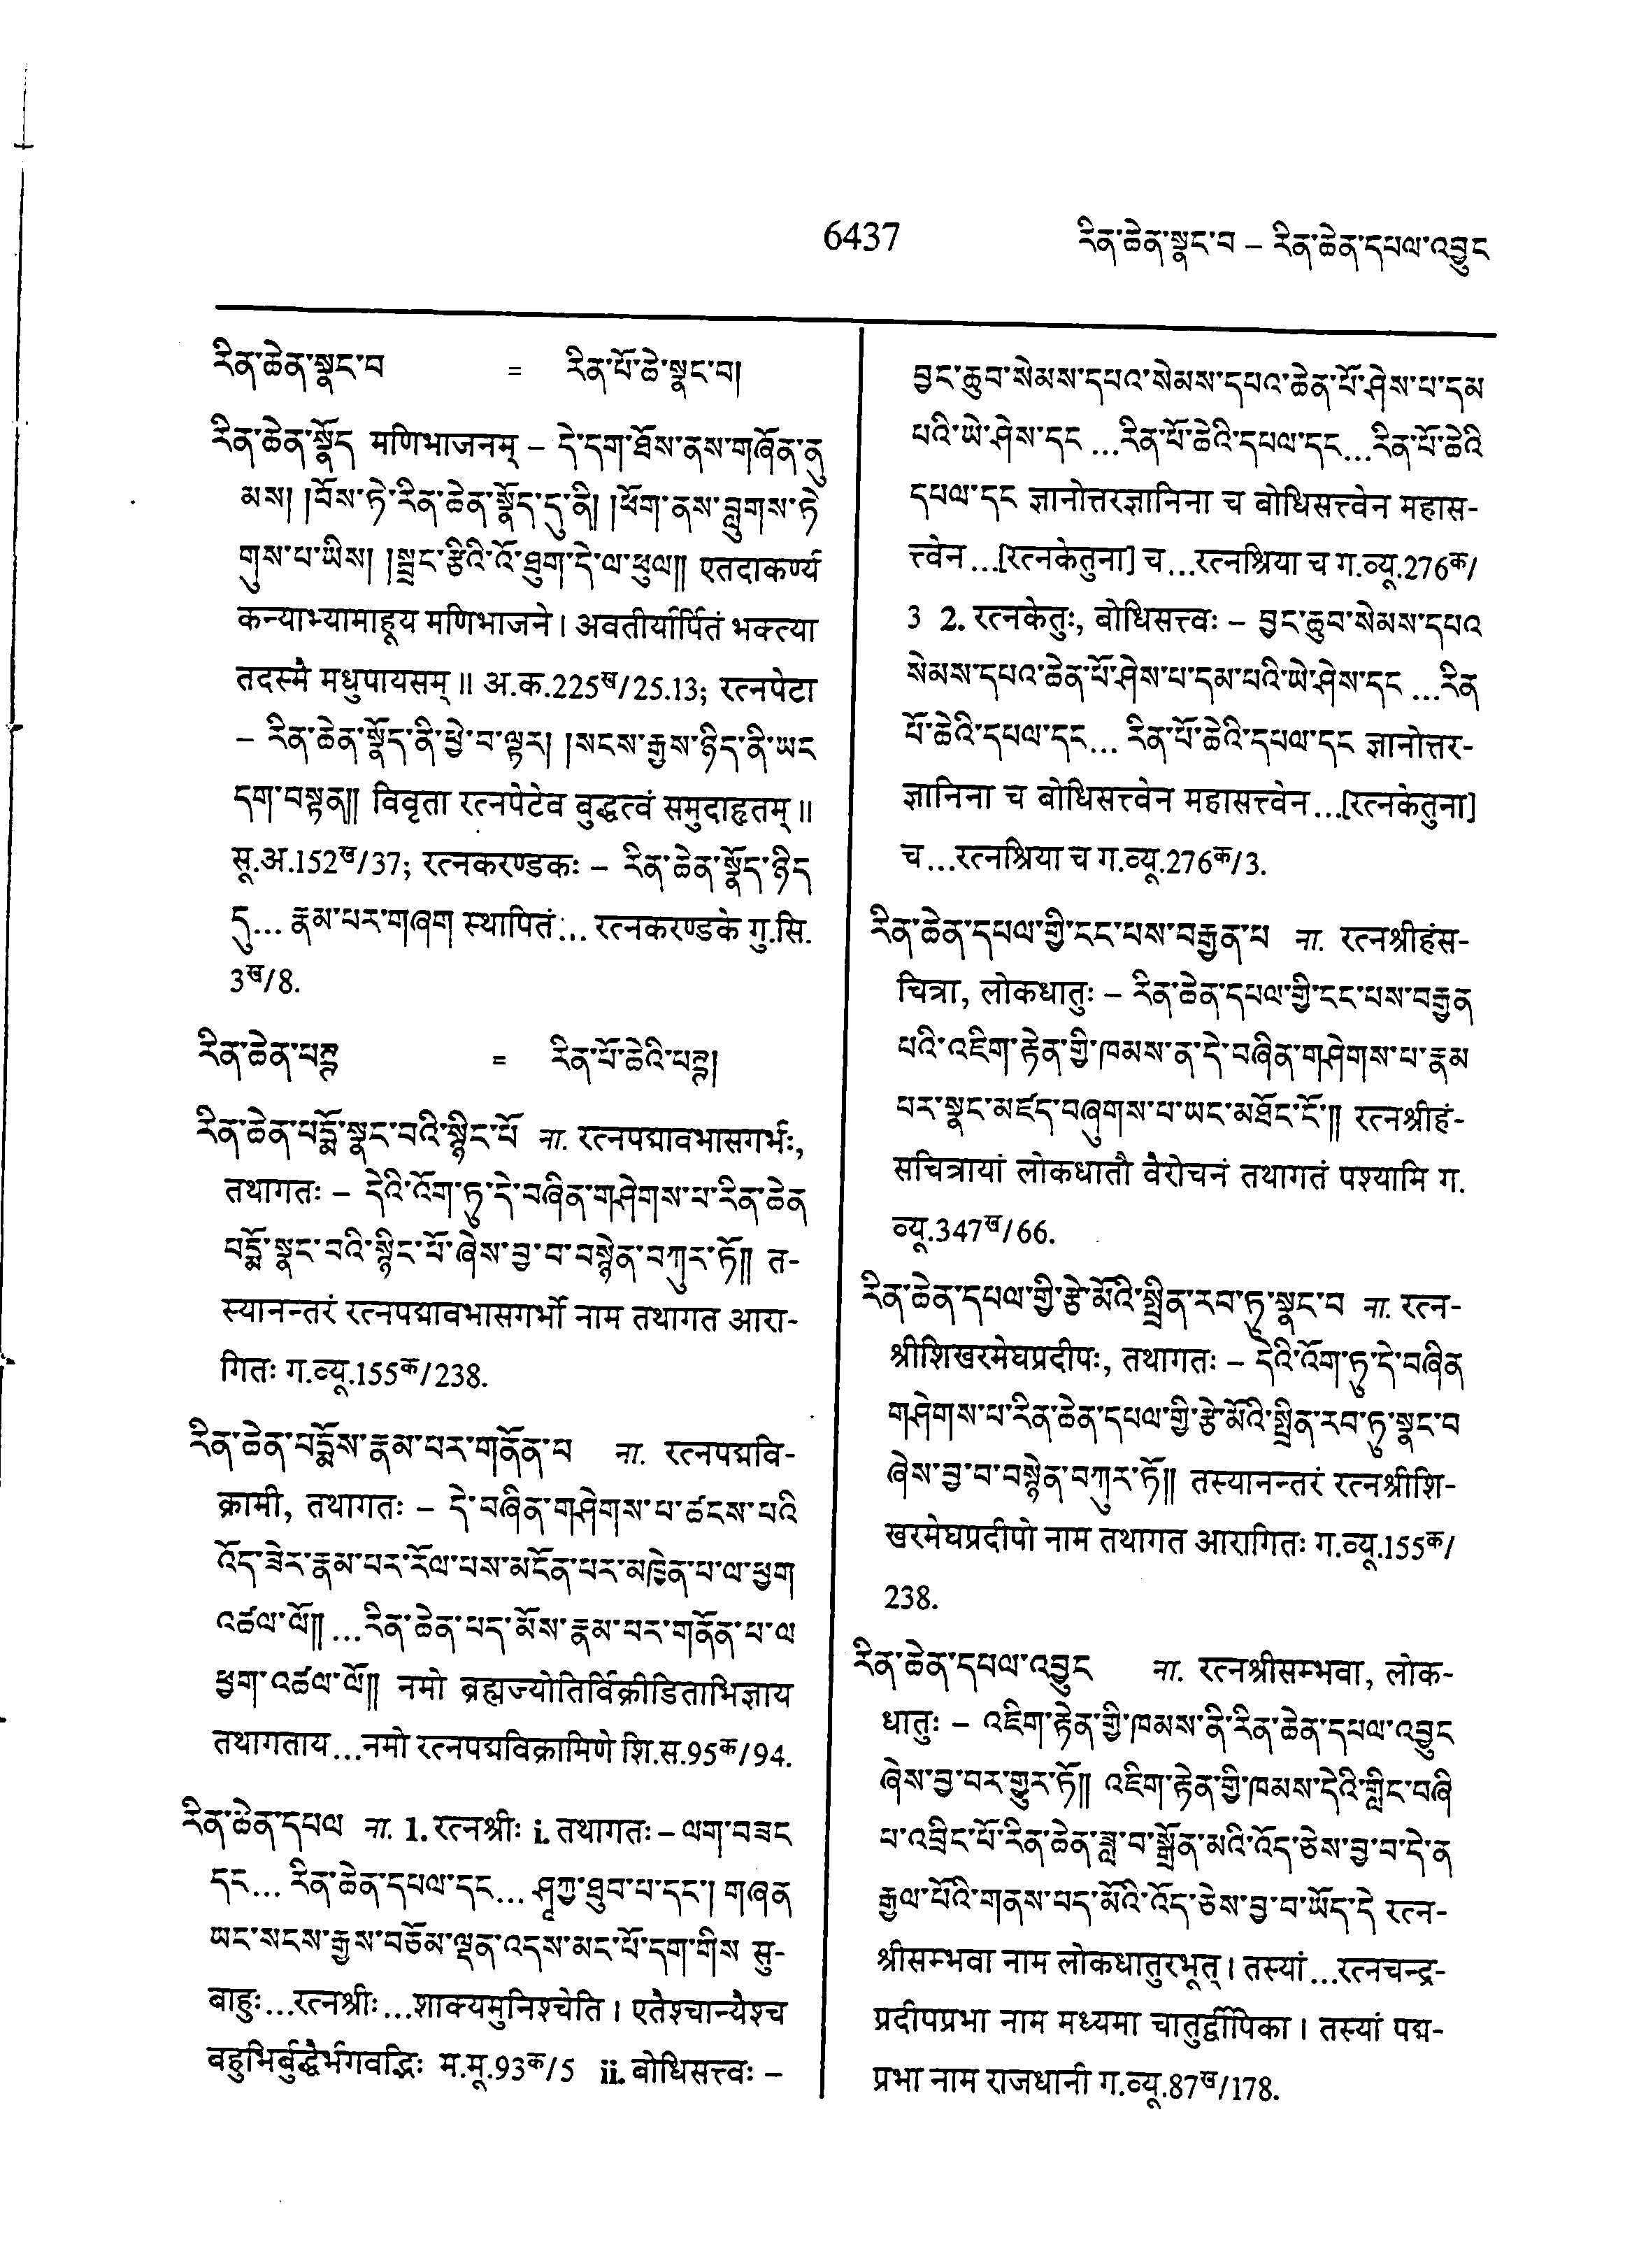 6437 རིན་ཆེན་སྣང་བ – རིན་ཆེན་དཔལ་འབྱུང
རིན་ཆེན་སྣང་བ = རིན་པོ་ཆེ་སྣང་བ།
རིན་ཆེན་སྣོད मणिभाजनम् – དེ་དག་ཐོས་ནས་གཞོན་ནུ
མས། །བོས་ཏེ་རིན་ཆེན་སྣོད་དུ་ནི། །ཕོག་ནས་བླུགས་ཏེ
གུས་པ་ཡིས། །སྦྲང་རྩིའི་འོ་ཐུག་དེ་ལ་ཕུལ།། एतदाकर्ण्य
कन्याभ्यामाहूय मणिभाजने। अवतीर्यार्पितं भक्त्या
तदस्मै मधुपायसम्॥ अ.क.225ख/25.13; रत्नपेटा
– རིན་ཆེན་སྣོད་ནི་ཕྱེ་བ་ལྟར། །སངས་རྒྱས་ཉིད་ནི་ཡང
དག་བསྟན།། विवृता रत्नपेटेव बुद्धत्वं समुदाहृतम्॥
सू.अ.152ख/37; रत्नकरण्डकः – རིན་ཆེན་སྣོད་ཉིད
དུ… རྣམ་པར་གཞག स्थापितं… रत्नकरण्डके गु.सि.
3ख/8.
རིན་ཆེན་པཊྚ = རིན་པོ་ཆེའི་པཊྚ།
རིན་ཆེན་པདྨོ་སྣང་བའི་སྙིང་པོ ना. रत्नपद्मावभासगर्भः,
तथागतः – དེའི་འོག་ཏུ་དེ་བཞིན་གཤེགས་པ་རིན་ཆེན
པདྨོ་སྣང་བའི་སྙིང་པོ་ཞེས་བྱ་བ་བསྙེན་བཀུར་ཏོ།། त-
स्यानन्तरं रत्नपद्मावभासगर्भो नाम तथागत आरा-
गितः ग.व्यू.155क/238.
རིན་ཆེན་པདྨོས་རྣམ་པར་གནོན་པ ना. रत्नपद्मवि-
क्रामी, तथागतः – དེ་བཞིན་གཤེགས་པ་ཚངས་པའི
འོད་ཟེར་རྣམ་པར་རོལ་པས་མངོན་པར་མཁྱེན་པ་ལ་ཕྱག
འཚལ་ལོ།། …རིན་ཆེན་པད་མོས་རྣམ་པར་གནོན་པ་ལ
ཕྱག་འཚལ་ལོ།། नमो ब्रह्मज्योतिर्विक्रीडिताभिज्ञाय
तथागताय…नमो रत्नपद्मविक्रामिणे शि.स.95क/94.
རིན་ཆེན་དཔལ ना. 1. रत्नश्रीः i. तथागतः – ལག་བཟང
དང… རིན་ཆེན་དཔལ་དང… ཤཱཀྱ་ཐུབ་པ་དང་། གཞན
ཡང་སངས་རྒྱས་བཅོམ་ལྡན་འདས་མང་པོ་དག་གིས सु-
बाहुः…रत्नश्रीः…शाक्यमुनिश्चेति। एतैश्चान्यैश्च
बहुभिर्बुद्धैर्भगवद्भिः म.मू.93क/5 ii. बोधिसत्त्वः –
བྱང་ཆུབ་སེམས་དཔའ་སེམས་དཔའ་ཆེན་པོ་ཤེས་པ་དམ
པའི་ཡེ་ཤེས་དང …རིན་པོ་ཆེའི་དཔལ་དང…རིན་པོ་ཆེའི
དཔལ་དང ज्ञानोत्तरज्ञानिना च बोधिसत्त्वेन महास-
त्त्वेन…[रत्नकेतुना] च…रत्नश्रिया च ग.व्यू.276क/
3 2. रत्नकेतुः, बोधिसत्त्वः – བྱང་ཆུབ་སེམས་དཔའ
སེམས་དཔའ་ཆེན་པོ་ཤེས་པ་དམ་པའི་ཡེ་ཤེས་དང …རིན
པོ་ཆེའི་དཔལ་དང… རིན་པོ་ཆེའི་དཔལ་དང ज्ञानोत्तर-
ज्ञानिना च बोधिसत्त्वेन महासत्त्वेन…[रत्नकेतुना]
च…रत्नश्रिया च ग.व्यू.276क/3.
རིན་ཆེན་དཔལ་གྱི་ངང་པས་བརྒྱན་པ ना. रत्नश्रीहंस-
चित्रा, लोकधातुः – རིན་ཆེན་དཔལ་གྱི་ངང་པས་བརྒྱན
པའི་འཇིག་རྟེན་གྱི་ཁམས་ན་དེ་བཞིན་གཤེགས་པ་རྣམ
པར་སྣང་མཛད་བཞུགས་པ་ཡང་མཐོང་ངོ་།། रत्नश्रीहं-
सचित्रायां लोकधातौ वैरोचनं तथागतं पश्यामि ग.
व्यू.347ख/66.
རིན་ཆེན་དཔལ་གྱི་རྩེ་མོའི་སྤྲིན་རབ་ཏུ་སྣང་བ ना. रत्न-
श्रीशिखरमेघप्रदीपः, तथागतः – དེའི་འོག་ཏུ་དེ་བཞིན
གཤེགས་པ་རིན་ཆེན་དཔལ་གྱི་རྩེ་མོའི་སྤྲིན་རབ་ཏུ་སྣང་བ
ཞེས་བྱ་བ་བསྙེན་བཀུར་ཏོ།། तस्यानन्तरं रत्नश्रीशि-
खरमेघप्रदीपो नाम तथागत आरागितः ग.व्यू.155क/
238.
རིན་ཆེན་དཔལ་འབྱུང ना. रत्नश्रीसम्भवा, लोक-
धातुः – འཇིག་རྟེན་གྱི་ཁམས་ནི་རིན་ཆེན་དཔལ་འབྱུང
ཞེས་བྱ་བར་གྱུར་ཏོ།། འཇིག་རྟེན་གྱི་ཁམས་དེའི་གླིང་བཞི
པ་འབྲིང་པོ་རིན་ཆེན་ཟླ་བ་སྒྲོན་མའི་འོད་ཅེས་བྱ་བ་དེ་ན
རྒྱལ་པོའི་གནས་པད་མོའི་འོད་ཅེས་བྱ་བ་ཡོད་དེ रत्न-
श्रीसम्भवा नाम लोकधातुरभूत्। तस्यां…रत्नचन्द्र-
प्रदीपप्रभा नाम मध्यमा चातुर्द्वीपिका। तस्यां पद्म-
प्रभा नाम राजधानी ग.व्यू.87ख/178.